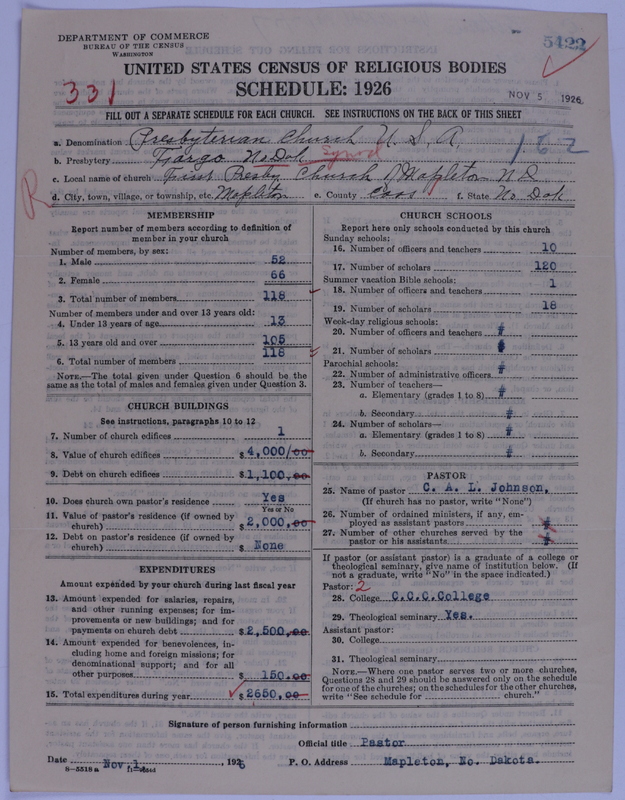 DEPARTMENT OF COMMERCE
BUREAU OF THE CENSUS
WASHINGTON
5422
UNITED STATES CENSUS OF RELIGIOUS BODIES
SCHEDULE: 1926
331
NOV 5 1926
FILL OUT A SEPARATE SCHEDULE FOR EACH CHURCH. SEE INSTRUCTIONS ON THE BACK OF THIS SHEET
a. Denomination Presbyterian Church U. S. A
b. Presbytery Fargo No Dak Synod
162
c. Local name of church First Presby Church of Mapleton N D
R
d. City, town, village, or township, etc. Mapleton e. County Cass f. State No Dak
MEMBERSHIP
Report number of members according to definition of
member in your church
Number of members, by sex:
1. Male 52
2. Female 66
3. Total number of members 118
Number of members under and over 13 years old:
4. Under 13 years of age 13
5. 13 years old and over 105
6. Total number of members 118
NOTE.—The total given under Question 6 should be the
same as the total of males and females given under Question 3.
CHURCH BUILDINGS
See instructions, paragraphs 10 to 12
7. Number of church edifices 1
8. Value of church edifices $4,000/00
9. Debt on church edifices $1,100,00
10. Does church own pastor's residence Yes
Yes or No
11. Value of pastor's residence (if owned by
church) $2,000,00
12. Debt on pastor's residence (if owned by
church) $ None
EXPENDITURES
Amount expended by your church during last fiscal year
13. Amount expended for salaries, repairs,
and other running expenses; for im-
provements or new buildings; and for
payments on church debt $2,500,00
14. Amount expended for benevolences, in-
cluding home and foreign missions; for
denominational support; and for all
other purposes $ 150.00
15. Total expenditures during year $2650,00
CHURCH SCHOOLS
Report here only schools conducted by this church
Sunday schools:
16. Number of officers and teachers 10
17. Number of scholars 120
Summer vacation Bible schools:
18. Number of officers and teachers 1
19. Number of scholars 18
Week-day religious schools:
20. Number of officers and teachers #
21. Number of scholars #
Parochial schools:
22. Number of administrative officers #
23. Number of teachers—
a. Elementary (grades 1 to 8) #
b. Secondary #
24. Number of scholars—
a. Elementary (grades 1 to 8) #
b. Secondary #
PASTOR
25. Name of pastor C. A. L. Johnson,
(If church has no pastor, write "None")
26. Number of ordained ministers, if any, em-
ployed as assistant pastors #
27. Number of other churches served by the
pastor or his assistants #
If pastor (or assistant pastor) is a graduate of a college or
theological seminary, give name of institution below. (If
not a graduate, write "No" in the space indicated.)
Pastor: 2
28. College C.C.C.College
29. Theological seminary Yes.
Assistant pastor:
30. College
31. Theological seminary
NOTE.—Where one pastor serves two or more churches,
Questions 28 and 29 should be answered only on the schedule
for one of the churches; on the schedules for the other churches,
write "See schedule for church."
Signature of person furnishing information
Official title Pastor
Date Nov 1, 1926 P. O. Address Mapleton, No. Dakota.
8-5518a